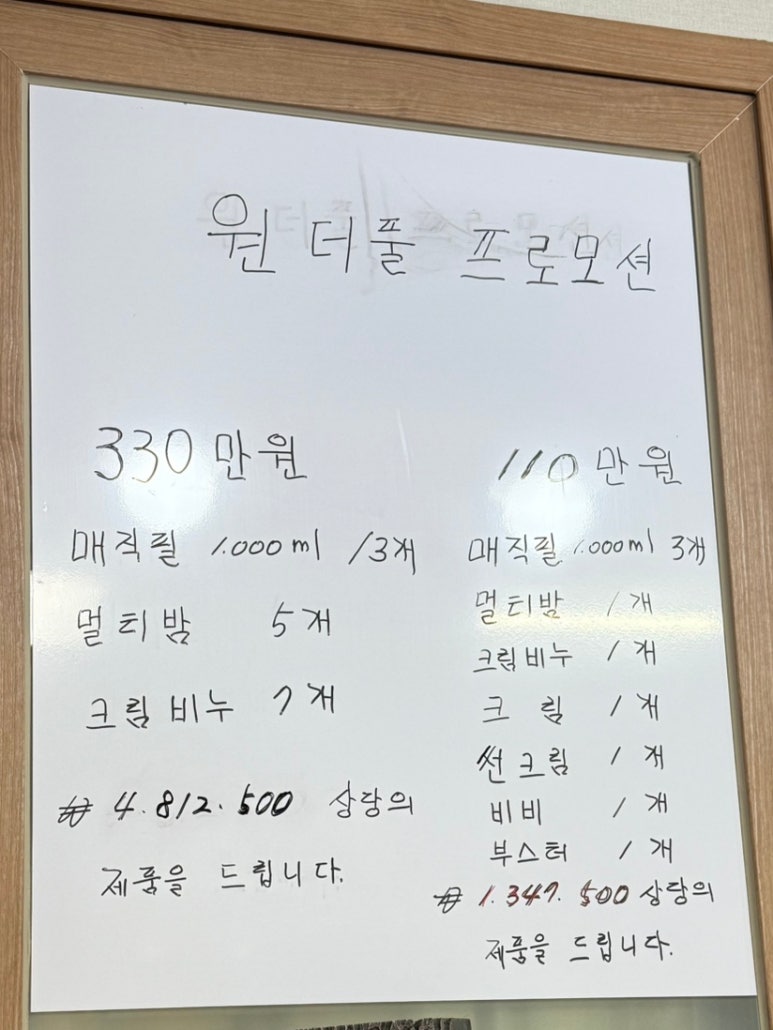 원더풀 프로모션
330만원
매직필 1.000ml 13개
멀티밤 5개
크림비누 7개
₩ 4.812.500 상당의
제품을 드립니다.
110만원
매직필 1.000ml 3개
멀티밤 1개
크림비누 1개
크림 1개
썬크림 1개
비비 1개
부스터 1개
₩ 1.347.500 상당의
제품을 드립니다.